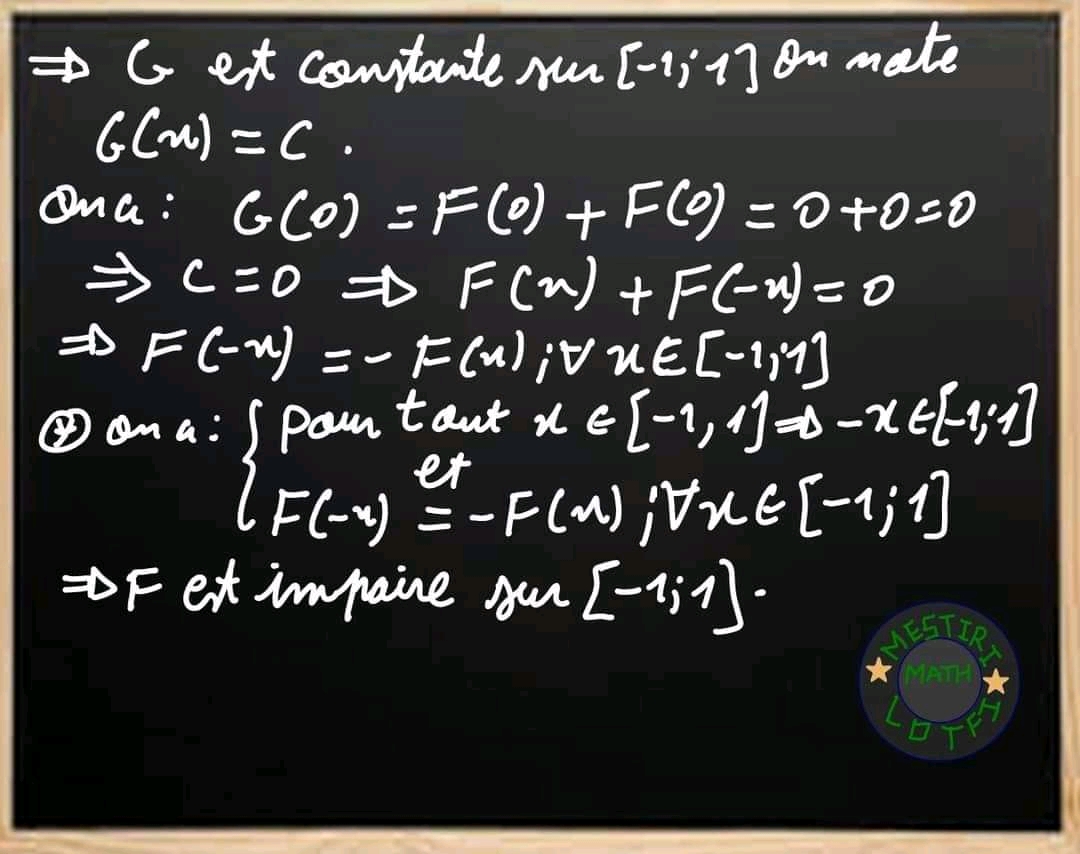 ⇒ G est constante sur [-1;1] on note
G(x) = C .
On a : G(0) = F(0) + F(0) = 0+0=0
⇒ C=0 ⇒ F(x) + F(-x)=0
⇒ F(-x) = - F(x) ; ∀ x ∈ [-1;1]
* on a : { pour tout x ∈ [-1,1] ⇒ -x ∈ [-1;1]
et
F(-x) = - F(x) ; ∀x ∈ [-1;1]
⇒ F est impaire sur [-1;1].
MESTIRI
MATH
LOTFI